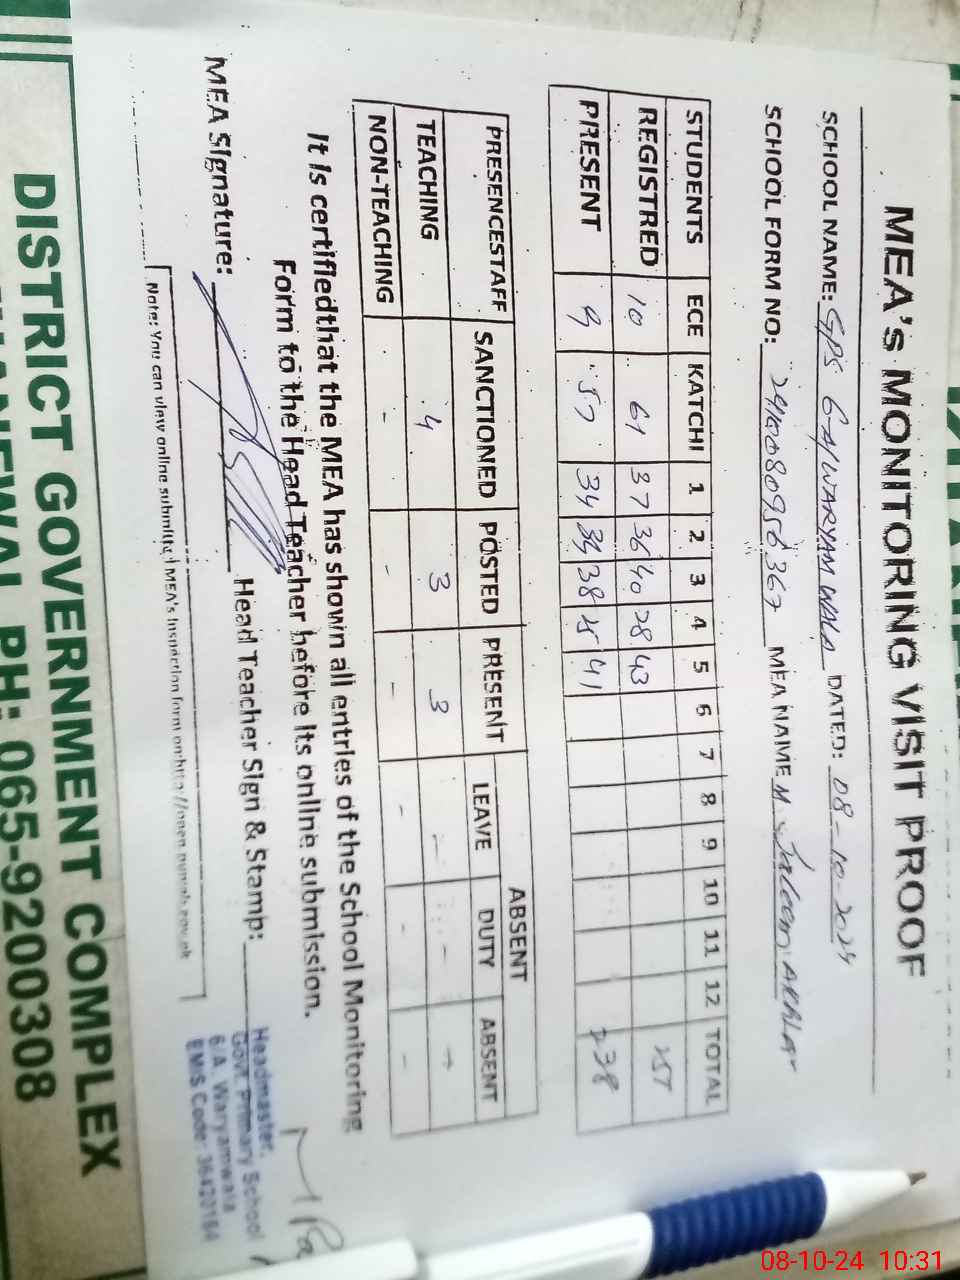 MEA's MONITORING VISIT PROOF
SCHOOL NAME: GPS 6-A/WARYAM WALA DATED: 08-10-2024
SCHOOL FORM NO: MEA NAME M. Saleem Akhtar
STUDENTS ECE KATCHI 1 2 3 4 5 6 7 8 9 10 11 12 TOTAL
REGISTRED 10 61 37 36 40 28 43
PRESENT 9 57 34 34 38 25 41 238
PRESENCESTAFF SANCTIONED POSTED PRESENT ABSENT
LEAVE DUTY ABSENT
TEACHING 4 3 3 - - -
NON-TEACHING - - - - - -
It is certifiedthat the MEA has shown all entries of the School Monitoring
Form to the Head Teacher before its online submission.
MEA Signature: Head Teacher Sign & Stamp:
Headmaster,
Govt. Primary School
6/A. Waryamwala
EMIS Code: 36420164
Note: You can view online submitted MEA's Inspection form on:
DISTRICT GOVERNMENT COMPLEX
PH: 065-9200308
08-10-24 10:31